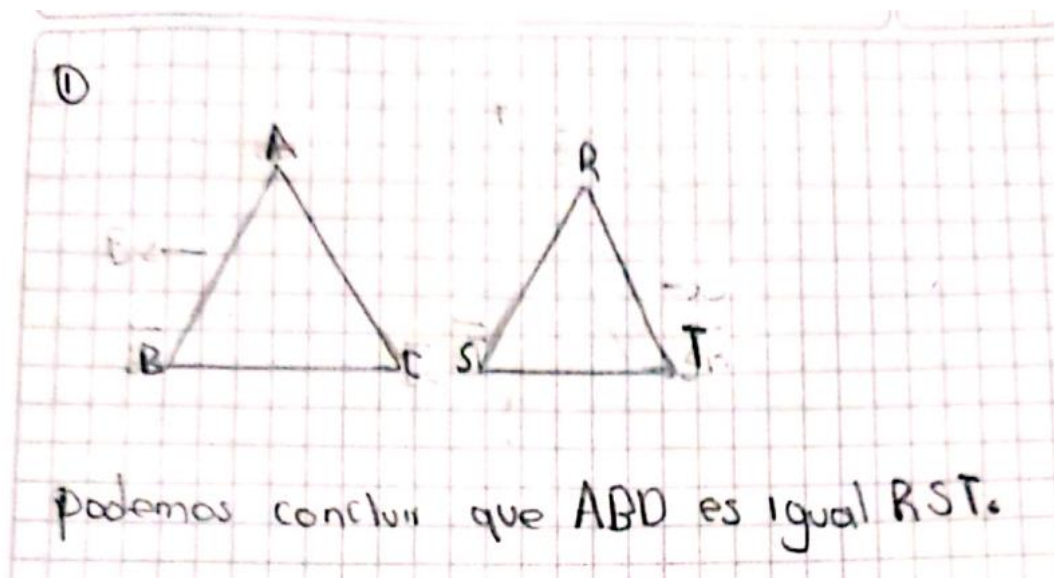 ①
A
R
B
C
S
T
podemos concluir que ABD es igual RST.